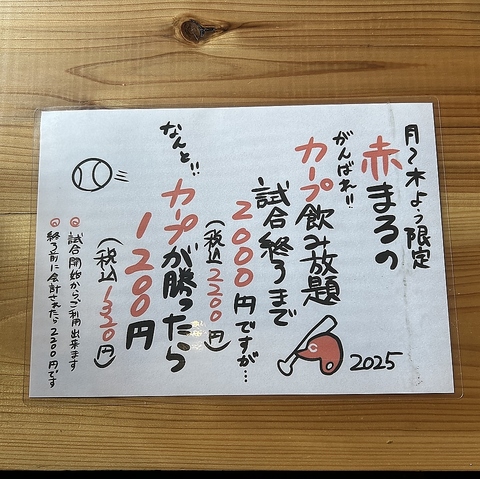 月〜木よう限定
赤まるの
がんばれ!!
カープ飲み放題
試合終うまで
2000円ですが…
(税込2200円)
なんと!!
カープが勝ったら
1200円
(税込1320円)
◎試合開始からご利用出来ます
◎終う前に会計されたら2200円です
C
2025